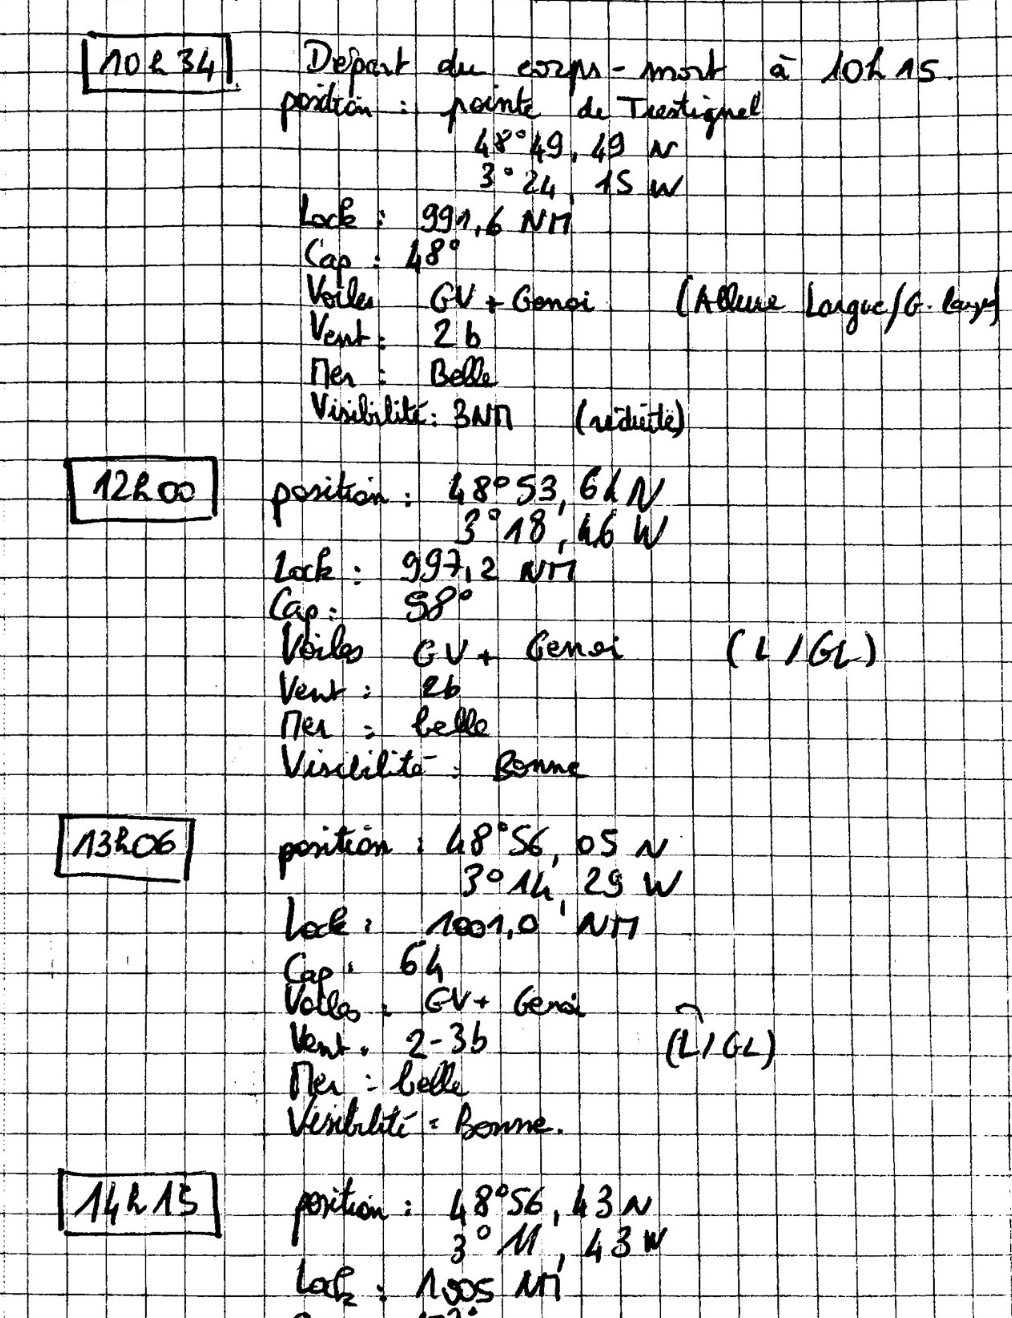 10h34 Départ du corps-mort à 10h15.
position : pointe de Trestignel
48°49,49 N
3°24,15 W
Lock : 991,6 NM
Cap : 48°
Voiles GV + Genoi (Allure Largue/G. large)
Vent : 2b
Mer : Belle
Visibilité : 3NM (réduite)
12h00 position : 48°53,64 N
3°18,46 W
Lock : 997,2 NM
Cap : 58°
Voiles GV + Genoi (L/GL)
Vent : 2b
Mer : belle
Visibilité : Bonne
13h06 position : 48°56,05 N
3°14,29 W
Lock : 1001,0 NM
Cap : 64
Voiles : GV + Genoi
Vent : 2-3b (L/GL)
Mer : belle
Visibilité : Bonne.
14h15 position : 48°56,43 N
3°11,43 W
Lock : 1005 NM